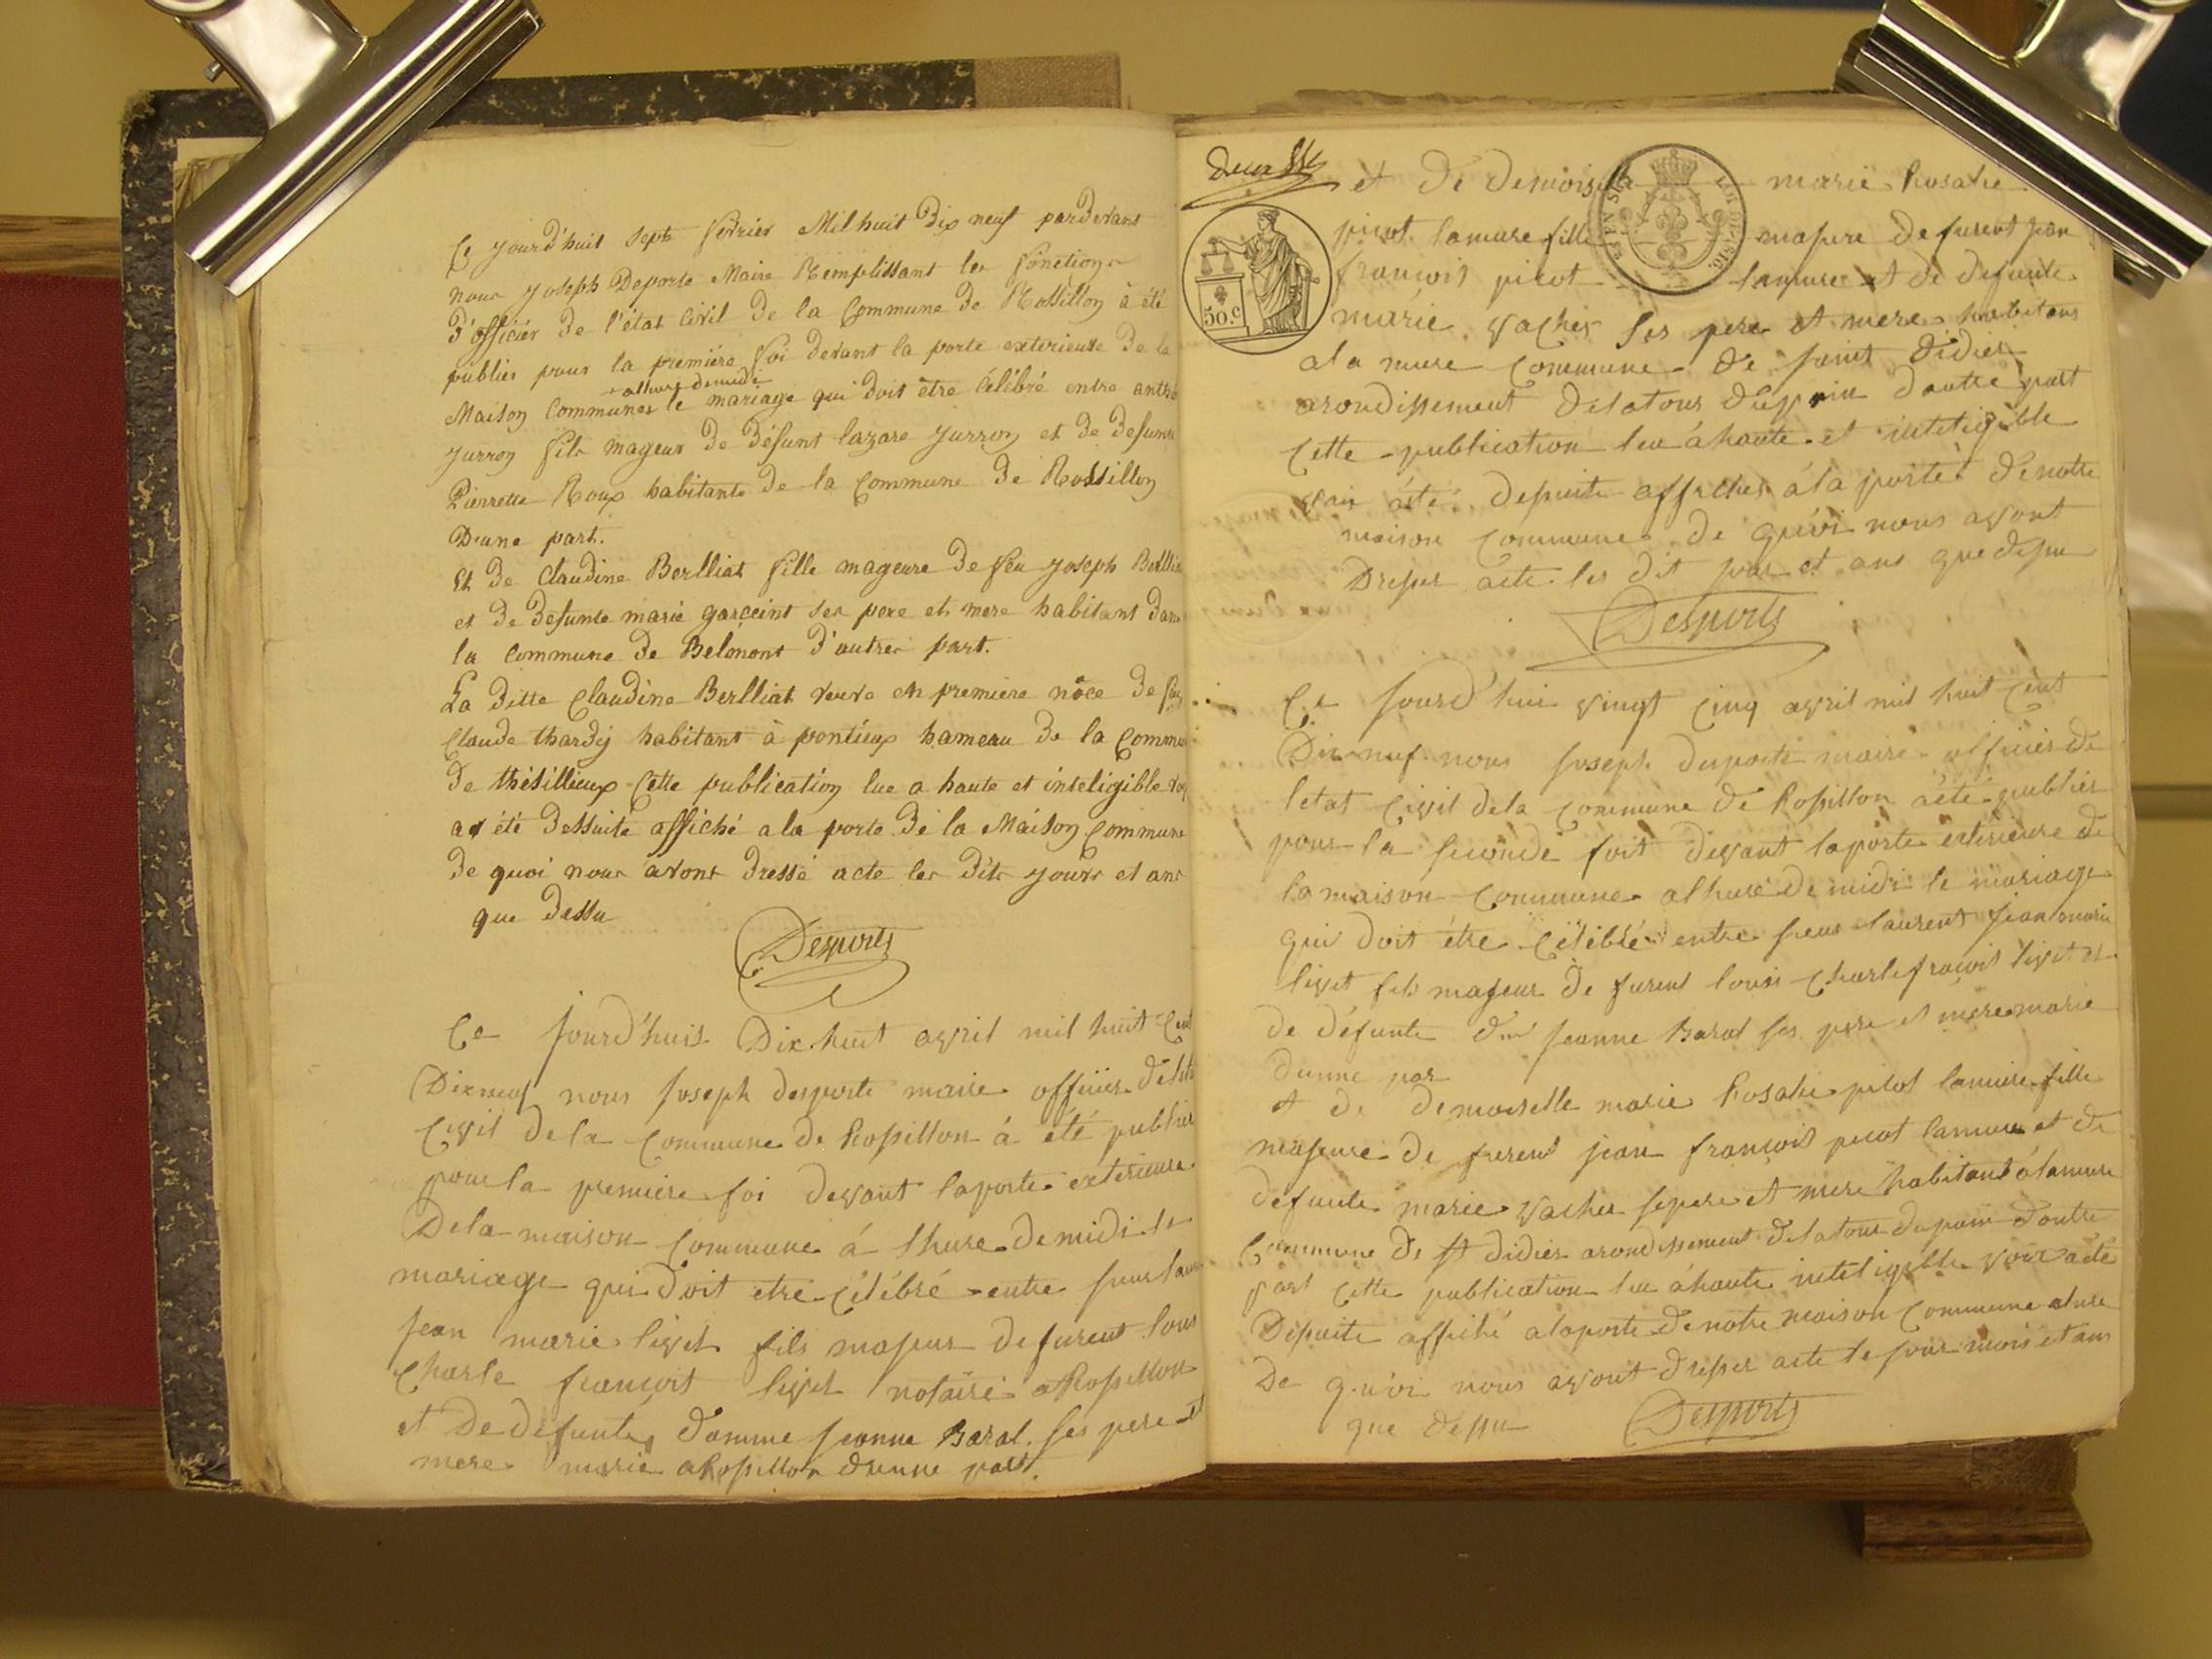 Ce yourd'huit sept fevrier Mil huit Dix neuf parDevant
nour yoseph Deporte Maire Remplissant ler fonctionr
D'officier de l'état Civil de la Commune de Rossillon à été
publier pour la premiére foi devant la porte exterieure De la
alheure demidi
Maison Communer le mariage qui doit être Célébré entre
yurron fils mageur de Défunt lazare yurron et de Defunte
Pierrette Roux habitante de la Commune de Rossillon
D'une part.
Et de Claudine Berlliat fille mageure de feu yoseph
et de Defunte marie garceint ser pere et mere habitant dans
la Commune de Belmont d'autrer part.
La ditte Claudine Berlliat veuve en premiere nôce de
Claude thardy habitant à pontieux hameau de la Commune
de thésillieux Cette publication lue a haute et inteligible
a été dessuite affiché a la porte de la Maison Commune
de quoi nour avonr dressé acte ler dits yourr et anr
que dessu
Desports
Ce Jourd'huis Dix huit avril mil huit Cent
Dixneuf nous Joseph desporte maire officier
Civil dela Commune de Rossillon á été publier
pour la premiere foi devant laporte exterieure
Dela maison Commune á lhure demidi le
mariage qui doit etre Célébré entre
Jean marie livet fils majeur defurent
Charle françoit livet notaire aRossillon
et De défunte damme Jeanne Barat ses pere et
mere marie aRossillon dunne part.
et de demoiselle marie Rosalie
picot lamure fille majeure defurent jean
françois picot lamure et de defunte
marie vacher ses pere et mere habitans
ala mure Commune de saint didier
arondissement delatour dautre part
Cette publication leu áhaute et inteligible
voix áété desuite afficher ála porte denotre
maison Commune de quoi nous avont
Dresser acte les dit jour et ans que desu
Desports
50.C
Ce Jourd'hui vingt Cinq avril mil huit Cent
Dix neuf nous Joseph desporte maire officier de
letat Civil dela Commune de Rossillon áété publier
pour la seconde foit devant laporte extérieure de
lamaison Commune alhure demidi le mariage
qui doit être Célébré entre sieur laurent Jean marie
livet fils majeur de furent louis Charle françois livet et
de défunte Jeanne Barat ses pere et mere marie
dunne par
et de demoiselle marie Rosalie picot lamure fille
majeure de furent jean françois picot lamure et de
defunte marie vacher sepere et mere habitant álamure
Commune de st didier arondissement delatour dupain dautre
part Cette publication leu áhaute inteligible voix áété
Desuite affiché alaporte denotre maison Commune
De quoi nous avont dresser acte le jour mois et ans
que dessu
Desports